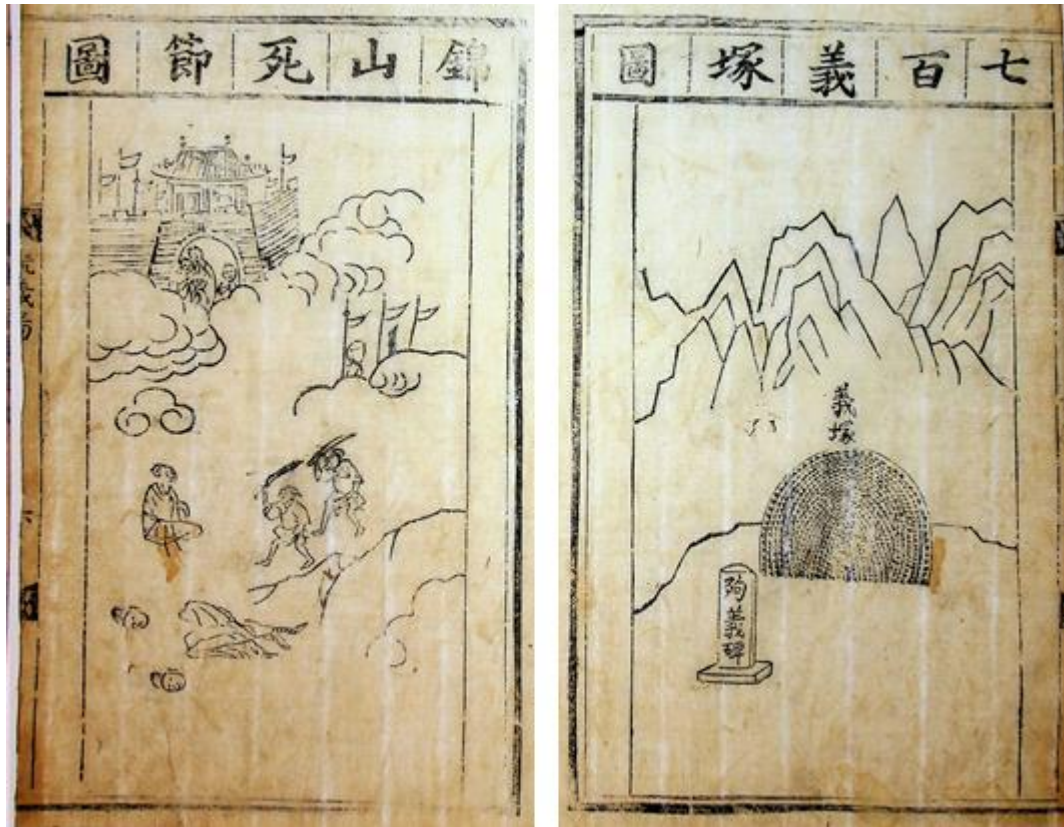 錦山死節圖
七百義塚圖
義塚
殉義碑